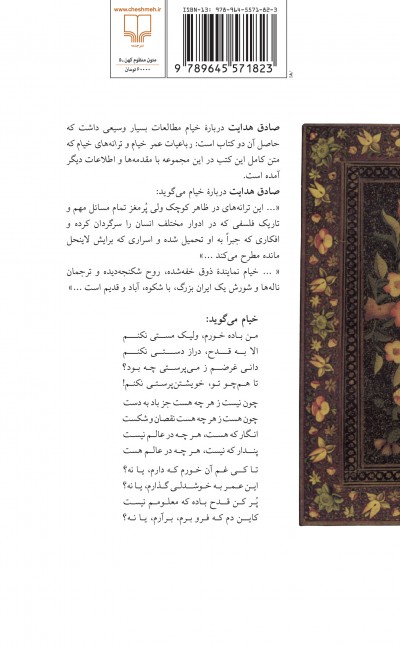 www.cheshmeh.ir
نشرچشمه
متون منظوم کهن ـ ۵
۶۰۰۰۰ تومان
ISBN-13: 978-964-5571-82-3
9 789645 571823
صادق هدایت دربارهٔ خیام مطالعات بسیار وسیعی داشت که
حاصل آن دو کتاب است: رباعیات عمر خیام و ترانه‌های خیام که
متن کامل این کتب در این مجموعه با مقدمه‌ها و اطلاعات دیگر
آمده است.
صادق هدایت دربارهٔ خیام می‌گوید:
«... این ترانه‌های در ظاهر کوچک ولی پُرمغز تمام مسائل مهم و
تاریک فلسفی که در ادوار مختلف انسان را سرگردان کرده و
افکاری که جبراً به او تحمیل شده و اسراری که برایش لاینحل
مانده مطرح می‌کند ...»
« ... خیام نمایندهٔ ذوق خفه‌شده، روح شکنجه‌دیده و ترجمان
ناله‌ها و شورش یک ایران بزرگ، با شکوه، آباد و قدیم است ...»
خیام می‌گوید:
من باده خورم، ولیک مستی نکنم
الا به قدح، دراز دستی نکنم
دانی غرضم ز می‌پرستی چه بود؟
تا هم‌چو تو، خویشتن‌پرستی نکنم!
چون نیست ز هر چه هست جز باد به دست
چون هست ز هر چه هست نقصان و شکست
انگار که هست، هر چه در عالم نیست
پندار که نیست، هر چه در عالم هست
تا کی غم آن خورم که دارم، یا نه؟
این عمر به خوشدلی گذارم، یا نه؟
پُر کن قدح باده که معلومم نیست
کاین دم که فرو برم، برآرم، یا نه؟